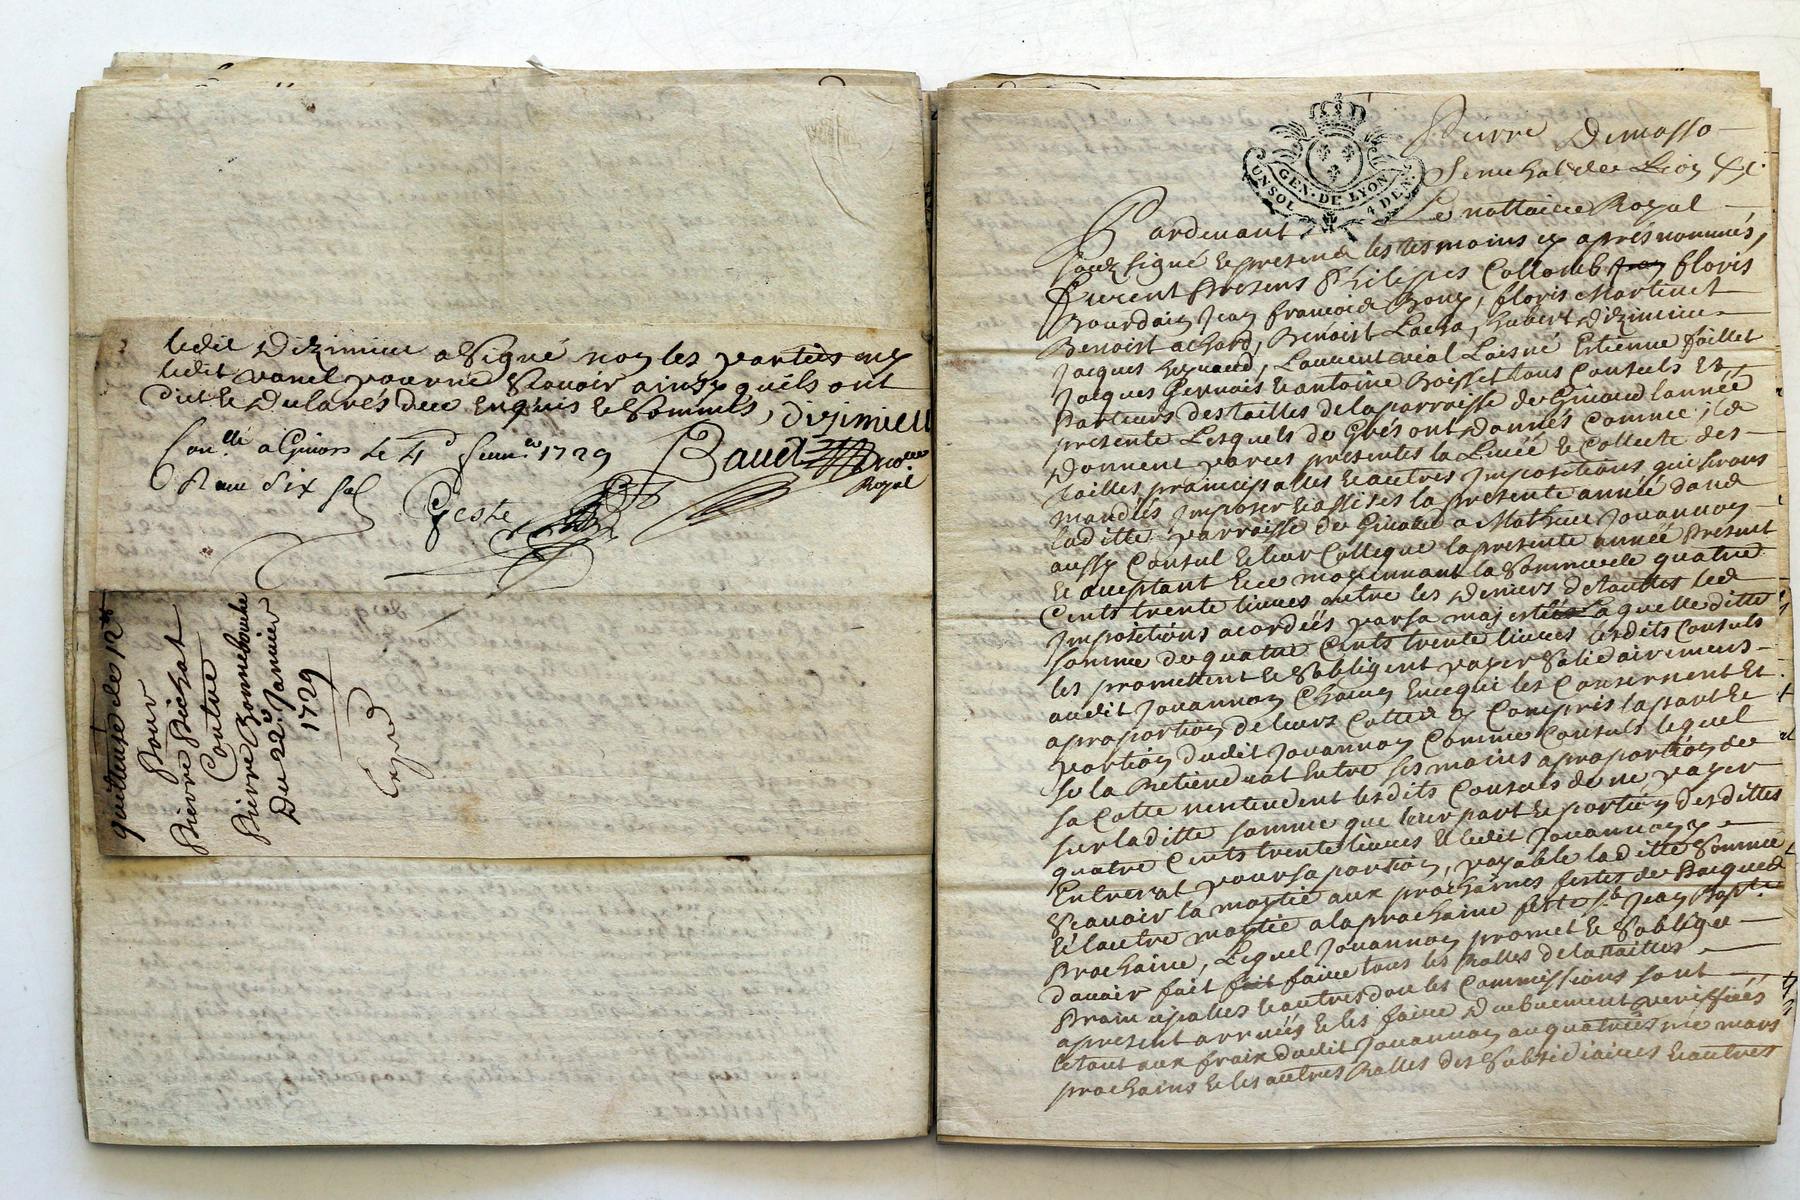 ledit Dizimieu a Signé non les parties ny
ledit vanel pour ne Scavoir ainsy quils ont
dit & Declarés de ce Enquis & Sommés, dizimieu
Con.llé a Givors le 4 1729 Bauet no.re
Reçu Six sol Royal
quittance de
Pour
Pierre
Contre
Pierre Bonnebouche
Du 22.e Janvier
1729
GEN. DE LYON
UN SOL 4 DEN.
Pierre Demasso
Senechal de Lion &c
Pardevant Le nottaire Royal
souz signé & presens les tesmoins cy apres nommés,
furent Presens Philippes Collomb Jean floris
Bourdain Jean francois Roux, floris Martinet
Benoist achard, Benoist Lacha, hubert Dizimieu
Jacques Laurent vial Laisné Estienne faillet
Jacques Gervais & antoine Boisset tous Consuls Et
Parteurs des tailles de la parroisse de Givord lannée
presente Lesquels de Grés ont Donnés comme ils
Donnent par ces presentes la Livée & Collecte des
tailles principalles & autres Impositions qui seront
mandées Imposer & assises la presente année dans
laditte parroisse de Givord a Mathieu Jouannon
aussy Consul & leur Collegue la presente année Present
& aceptant & ce moyennant la Somme de quatre
Cents trente livres outre les Deniers de
Impositions acordées par sa majesté Laquelle ditte
somme de quatre Cents trente livres lesdits Consuls
les promettent & Sobligent payer Solidairement
audit Jouannon Chacun En ce qui les Concernent Et
a proportion de leurs Cottes y Compris la part &
portion dudit Jouannon Comme Consuls lequel
se la Retiendrat Entre ses mains a proportion de
sa Cotte nentendent lesdits Consuls de ne payer
sur laditte somme que leur part & portion desdittes
quatre Cents trente livres & ledit Jouannon y
Entrerat pour sa portion, payable laditte Somme
Scavoir la moytié aux prochaines festes de Pacques
& lautre moytié a la prochaine feste St Jean Bapt.e
Prochaine, Lequel Jouannon promet & Soblige
davoir fait fait faire tous les Rolles de la tailles
Principalles & autres dont les Commissions sont
apresent arrivées & les faire Duebuement veriffiées
le tout aux fraix dudit Jouannon au quatriesme mars
prochains & les autres Rolles des Subsidiaires & autres